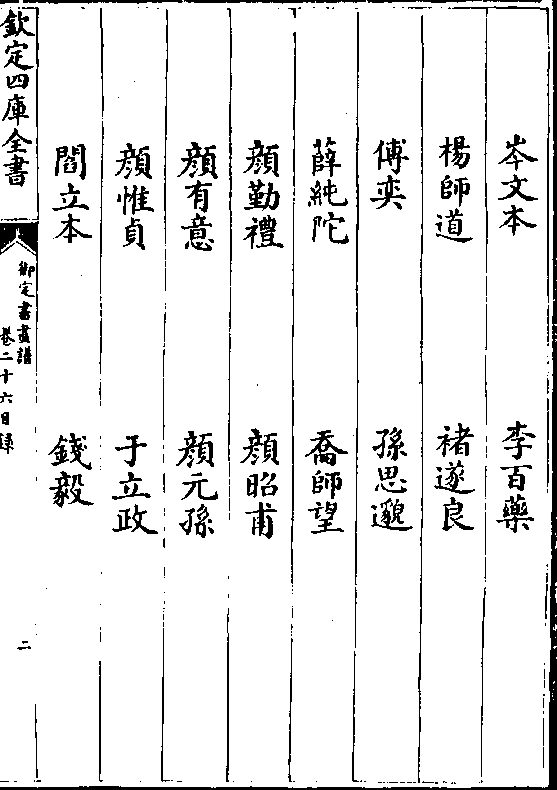 岑文本 李百藥
楊師道 褚遂良
傅奕 孫思邈
薛純陀 喬師望
顔勤禮 顔昭甫
顔有意 顔元孫
顔惟貞 于立政
閻立本 錢毅
欽定四庫全書
御定書畫譜
卷二十六目錄
二